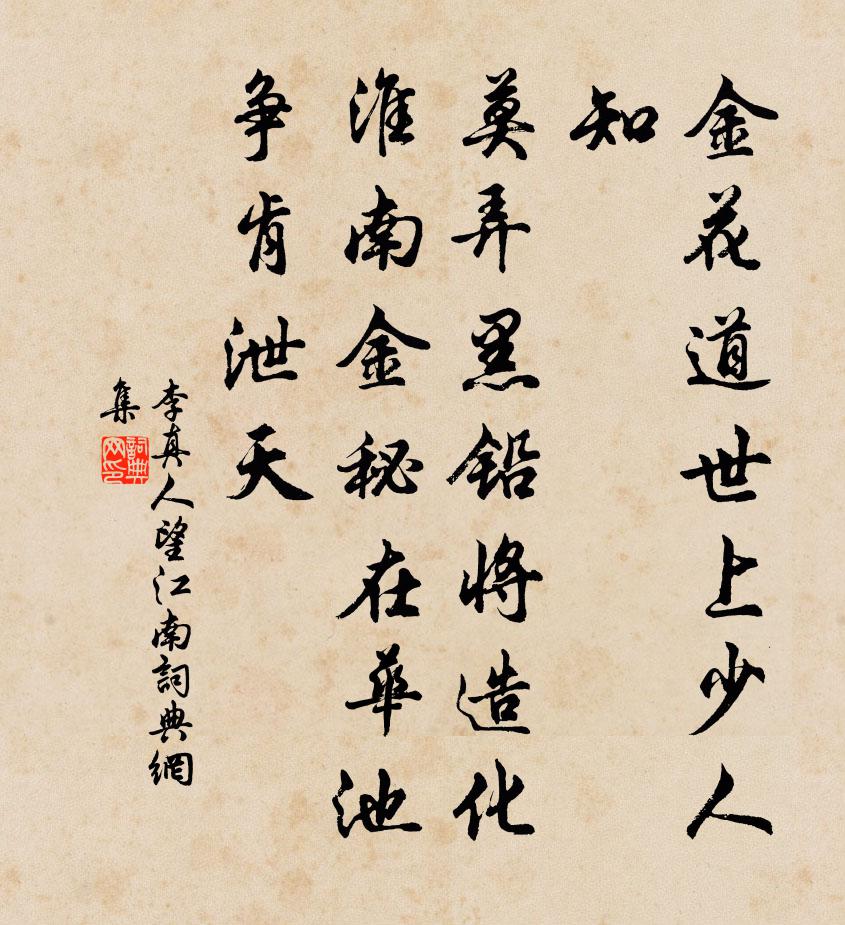 金花道世上少人
知
莫弄黑铅将造化
淮南金秘在華池
争肯泄天
李真人望江南詞典網
集
詞典
网印